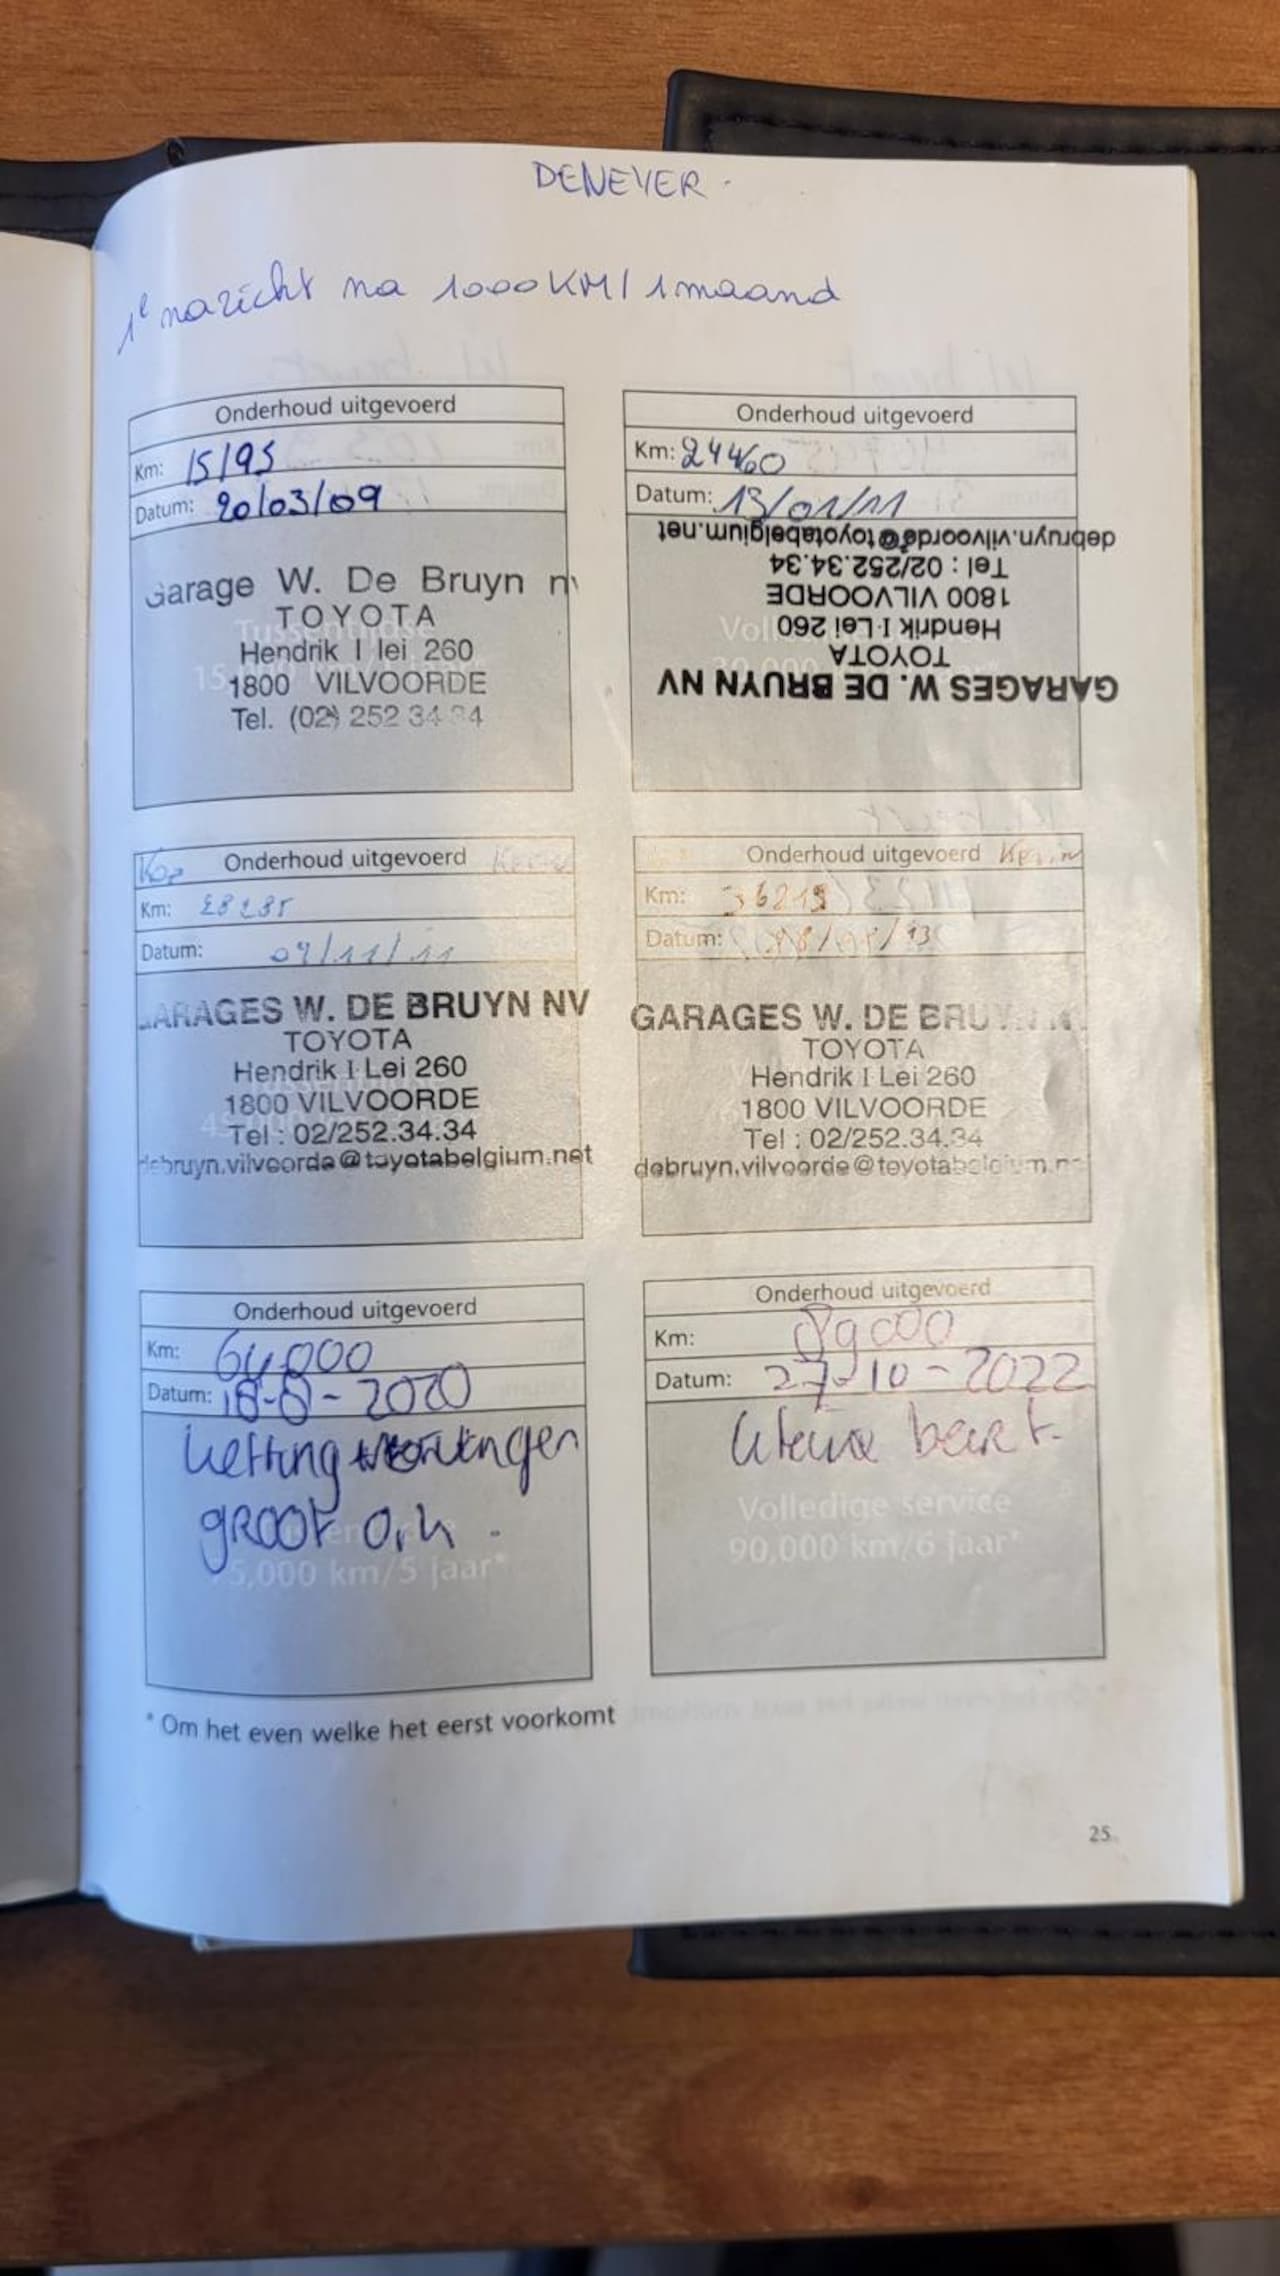 DENEYER.
1e nazicht na 1000 KM / 1 maand
Onderhoud uitgevoerd
Km: 15195
Datum: 20/03/09
Garage W. De Bruyn nv
TOYOTA
Hendrik I lei 260
1800 VILVOORDE
Tel. (02) 252 34 34
Onderhoud uitgevoerd
Km: 24460
Datum: 13/01/11
GARAGES W. DE BRUYN NV
TOYOTA
Hendrik I Lei 260
1800 VILVOORDE
Tel : 02/252.34.34
debruyn.vilvoorde@toyotabelgium.net
Onderhoud uitgevoerd
Km: 28235
Datum: 04/11/11
GARAGES W. DE BRUYN NV
TOYOTA
Hendrik I Lei 260
1800 VILVOORDE
Tel : 02/252.34.34
debruyn.vilvoorde@toyotabelgium.net
Onderhoud uitgevoerd Kevin
Km: 36219
Datum:
GARAGES W. DE BRUYN NV
TOYOTA
Hendrik I Lei 260
1800 VILVOORDE
Tel : 02/252.34.34
debruyn.vilvoorde@toyotabelgium.net
Onderhoud uitgevoerd
Km: 64000
Datum: 18-8-2020
ketting
groot o.h.
75,000 km/5 jaar*
Onderhoud uitgevoerd
Km: 89000
Datum: 27-10-2022
kleine beurt.
Volledige service
90,000 km/6 jaar*
* Om het even welke het eerst voorkomt
25